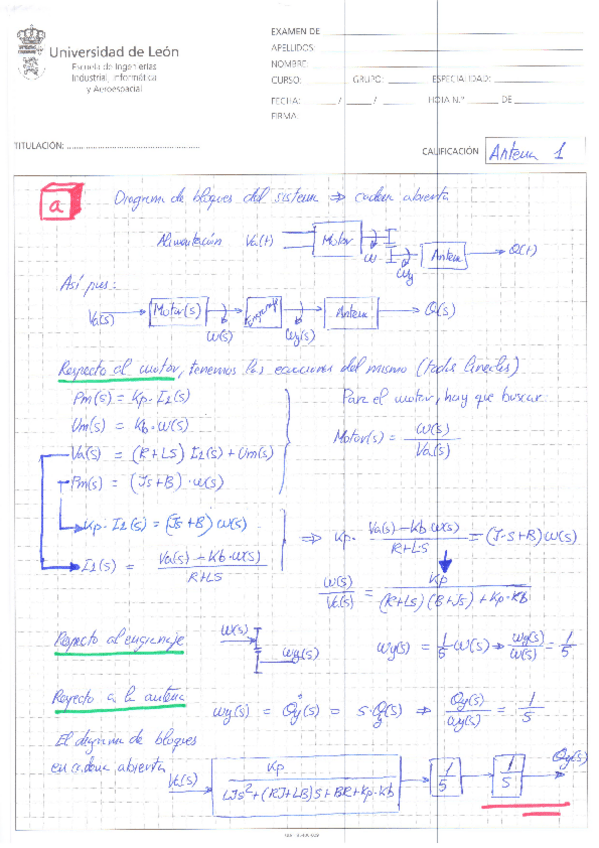 Universidad de León
Escuela de Ingenierías
Industrial, Informática
y Aeroespacial
EXAMEN DE
APELLIDOS:
NOMBRE:
CURSO: GRUPO: ESPECIALIDAD:
FECHA: / / HOJA N.º DE
FIRMA:
TITULACIÓN: CALIFICACIÓN Antena 1
a Diagrama de bloques del sistema ⇒ cadena abierta
Alimentación Va(t) Motor ω ωg Antena θ(t)
Así pues:
Va(s) Motor(s) ω(s) Engranaje ωg(s) Antena θ(s)
Respecto al motor, tenemos las ecuaciones del mismo (todas lineales)
Pm(s) = Kp · I2(s) Para el motor, hay que buscar
Um(s) = Kb · ω(s) Motor(s) = ω(s) / Va(s)
Va(s) = (R+LS) I2(s) + Um(s)
Pm(s) = (Js+B) · ω(s)
Kp · I2(s) = (Js+B) ω(s) ⇒ Kp · Va(s) – Kb ω(s) / R+LS = (J·S+B) ω(s)
I2(s) = Va(s) – Kb · ω(s) / R+LS
ω(s) / Va(s) = Kp / (R+Ls) (B+Js) + Kp·Kb
Respecto al engranaje ω(s) ωg(s) ωg(s) = 1/5 ω(s) → ωg(s) / ω(s) = 1/5
Respecto a la antena ωg(s) = θ̇g(s) = s·θg(s) ⇒ θg(s) / ωg(s) = 1/S
El diagrama de bloques
en cadena abierta Va(s) Kp / LJs² + (RJ+LB)S + BR + Kp·Kb 1/5 1/S θg(s)